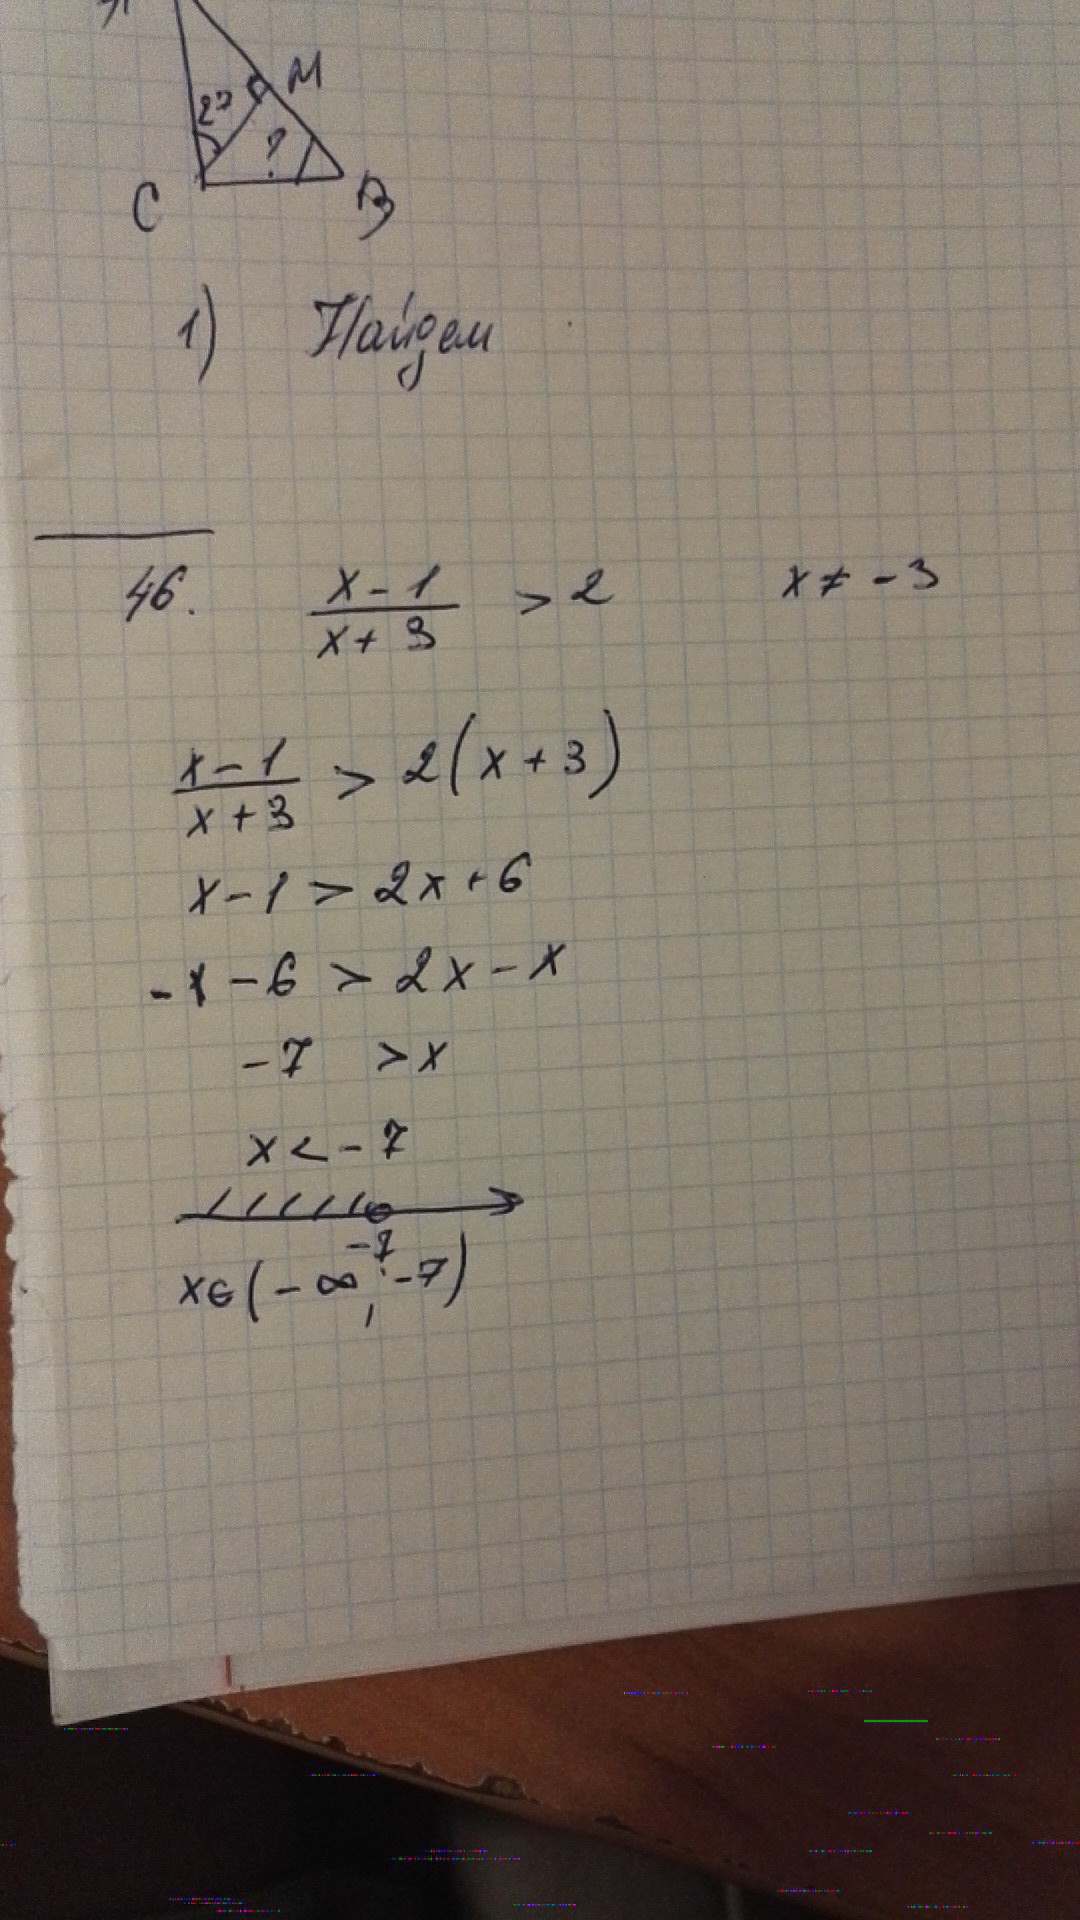 M
27
?
C
B
1) Найдем
46. x - 1 / x + 3 > 2 x ≠ - 3
x - 1 / x + 3 > 2 (x + 3)
x - 1 > 2x + 6
-1 - 6 > 2x - x
- 7 > x
x < - 7
-7
x∈(- ∞; -7)